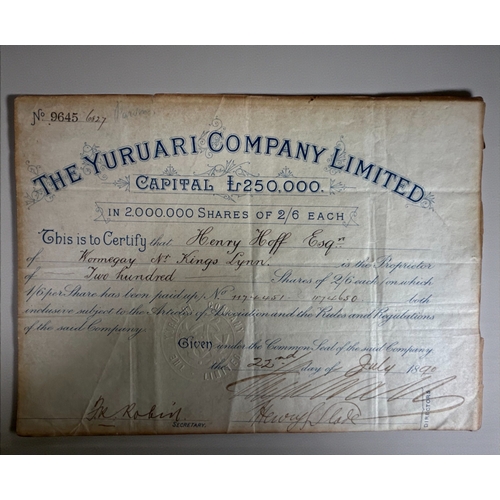 No 9645 6127
THE YURUARI COMPANY LIMITED
CAPITAL £250,000.
IN 2.000.000 SHARES OF 2/6 EACH
This is to Certify that Henry Hoff Esqr
of Wormegay Nr Kings Lynn. is the Proprietor
of Two hundred Shares of 2/6 each on which
1/6 per Share has been paid up, No both
inclusive subject to the Articles of Association and the Rules and Regulations
of the said Company.
Given under the Common Seal of the said Company
the 22nd day of July 1890
Henry Slade
DIRECTORS
Robin
SECRETARY.